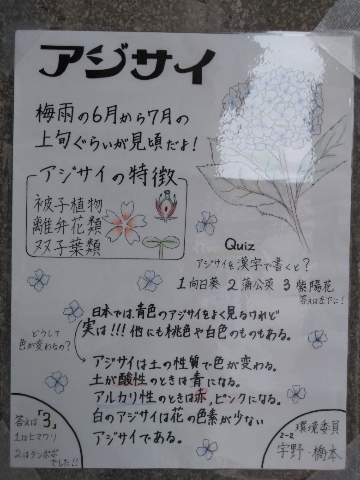 アジサイ
梅雨の6月から7月の
上旬ぐらいが見頃だよ!
アジサイの特徴
被子植物
離弁花類
双子葉類
Quiz
アジサイを漢字で書くと?
1向日葵 2蒲公英 3紫陽花
答えは左下に!
日本では、青色のアジサイをよく見るけれど
実は!!!他にも桃色や白色のものもある。
どうして
色が変わるの?
アジサイは土の性質で色が変わる。
土が酸性のときは青になる。
アルカリ性のときは赤、ピンクになる。
白のアジサイは花の色素が少ない
アジサイである。
答えは「3」
1はヒマワリ
2はタンポポ
でした!!
環境委員
2-2
宇野・橋本